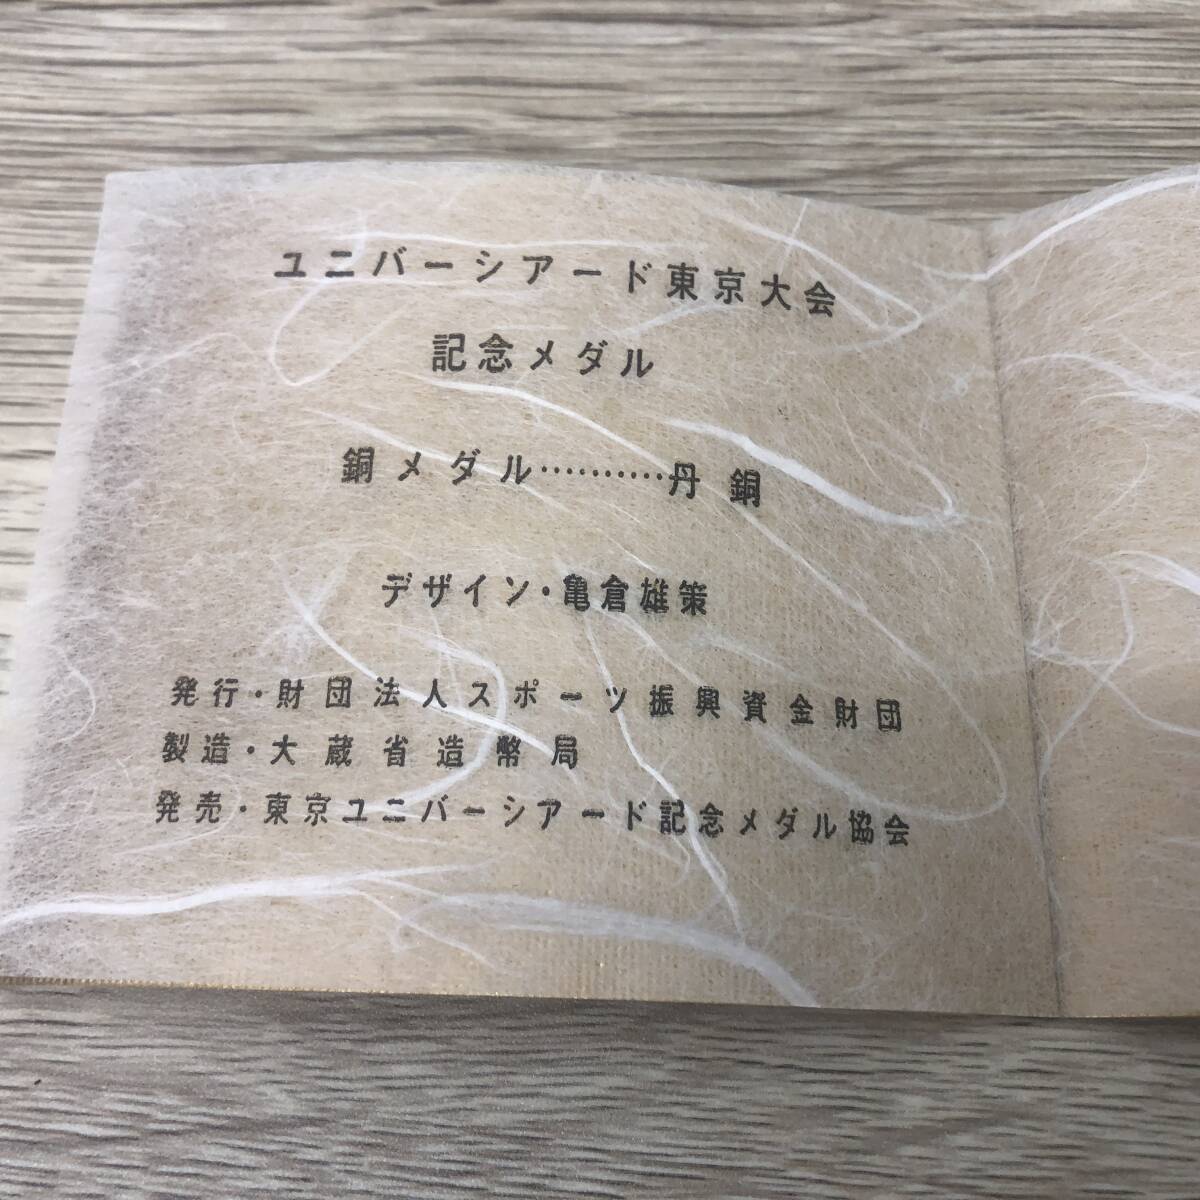 ユニバーシアード東京大会
記念メダル
銅メダル‥‥‥‥‥丹銅
デザイン・亀倉雄策
発行・財団法人スポーツ振興資金財団
製造・大蔵省造幣局
発売・東京ユニバーシアード記念メダル協会